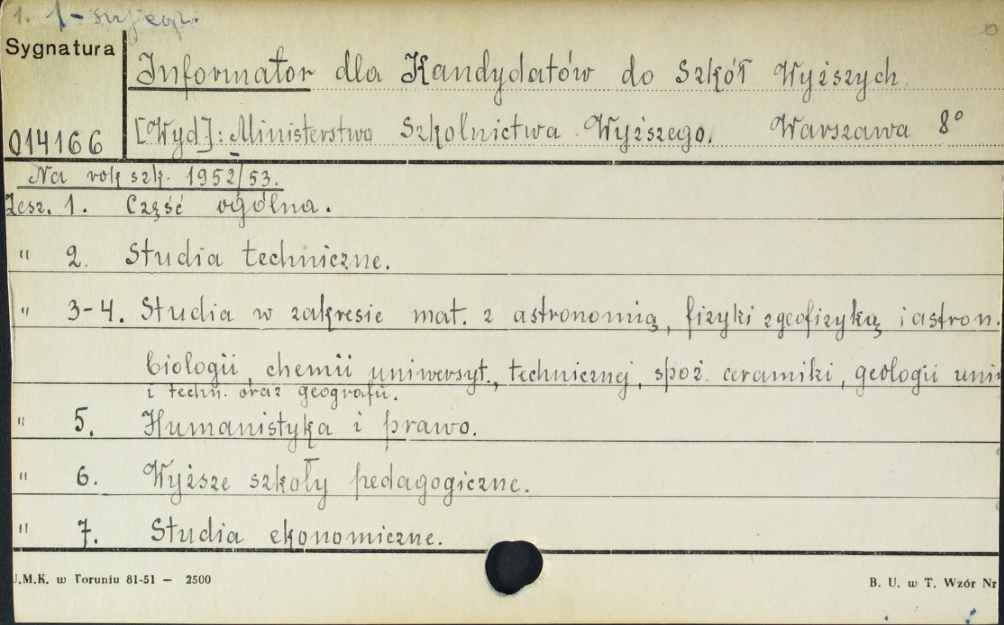 1.
Sygnatura
Informator dla Kandydatów do Szkół Wyższych
014166
[Wyd]: Ministerstwo Szkolnictwa Wyższego. Warszawa 8°
Na rok szk. 1952/53.
Zesz. 1. Część ogólna.
" 2. Studia techniczne.
" 3-4. Studia w zakresie mat. z astronomią, fizyki z geofizyką i astron.
biologii, chemii uniwersyt., technicznej, spoż. ceramiki, geologii uni
i techn. oraz geografii.
" 5. Humanistyka i prawo.
" 6. Wyższe szkoły pedagogiczne.
" 7. Studia ekonomiczne.
U.M.K. w Toruniu 81-51 — 2500
B. U. w T. Wzór Nr